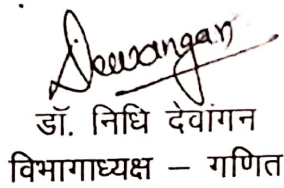 Dewangan
डॉ. निधि देवांगन
विभागाध्यक्ष – गणित